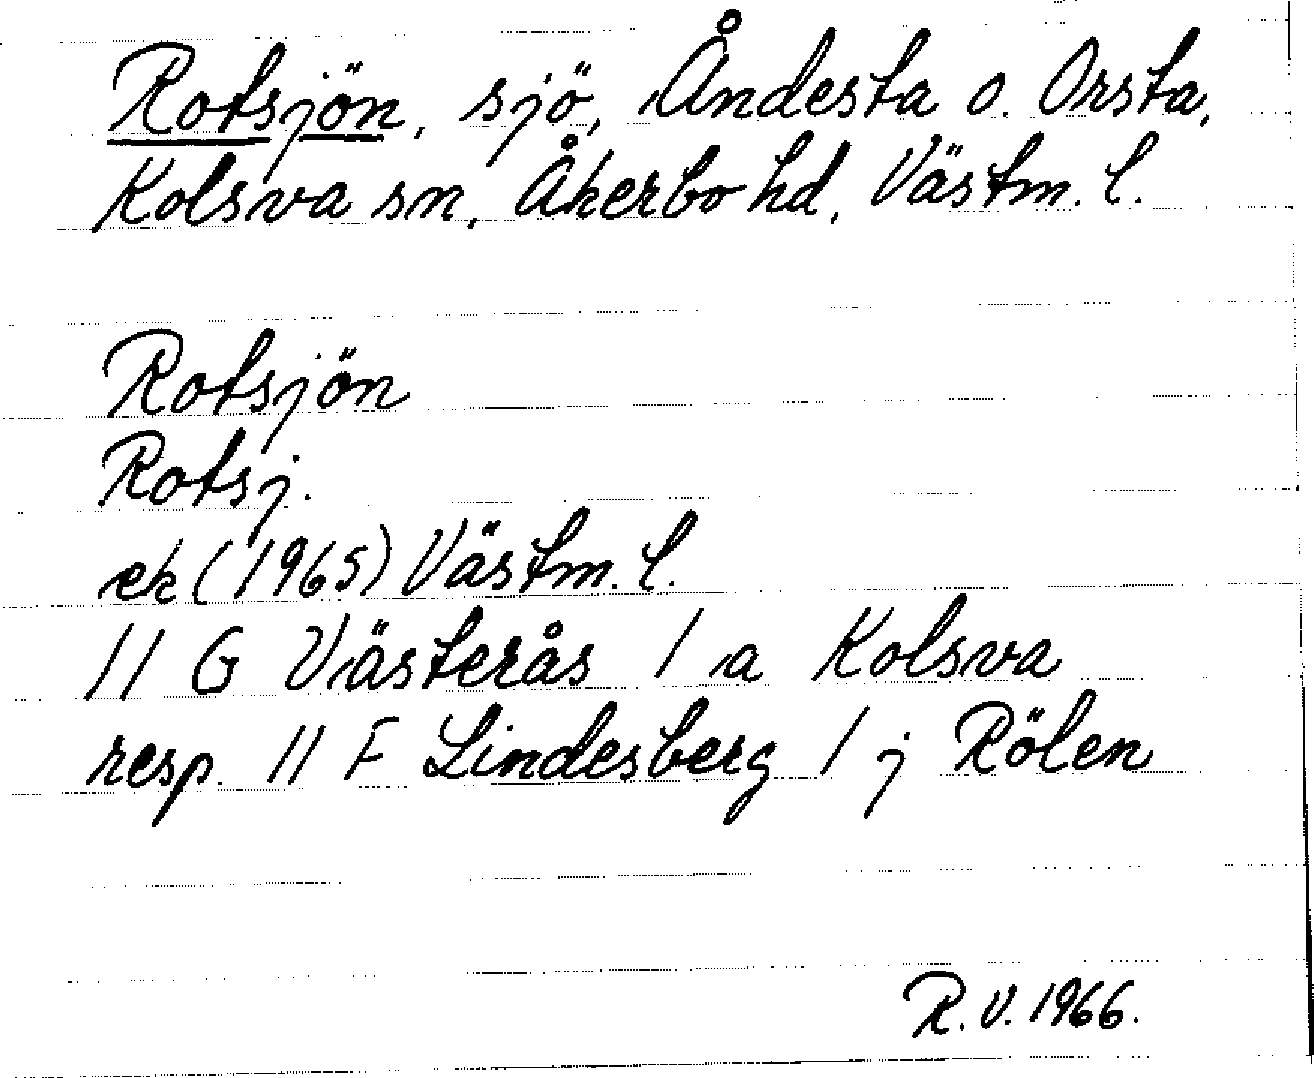 Rotsjön, sjö, Åndesta o. Orsta,
Kolsva sn, Åkerbo hd, Västm. l.
Rotsjön
Rotsj.
ek (1965) Västm. l.
11 G Västerås 1 a Kolsva
resp. 11 F Lindesberg 1 j Rölen
R. V. 1966.